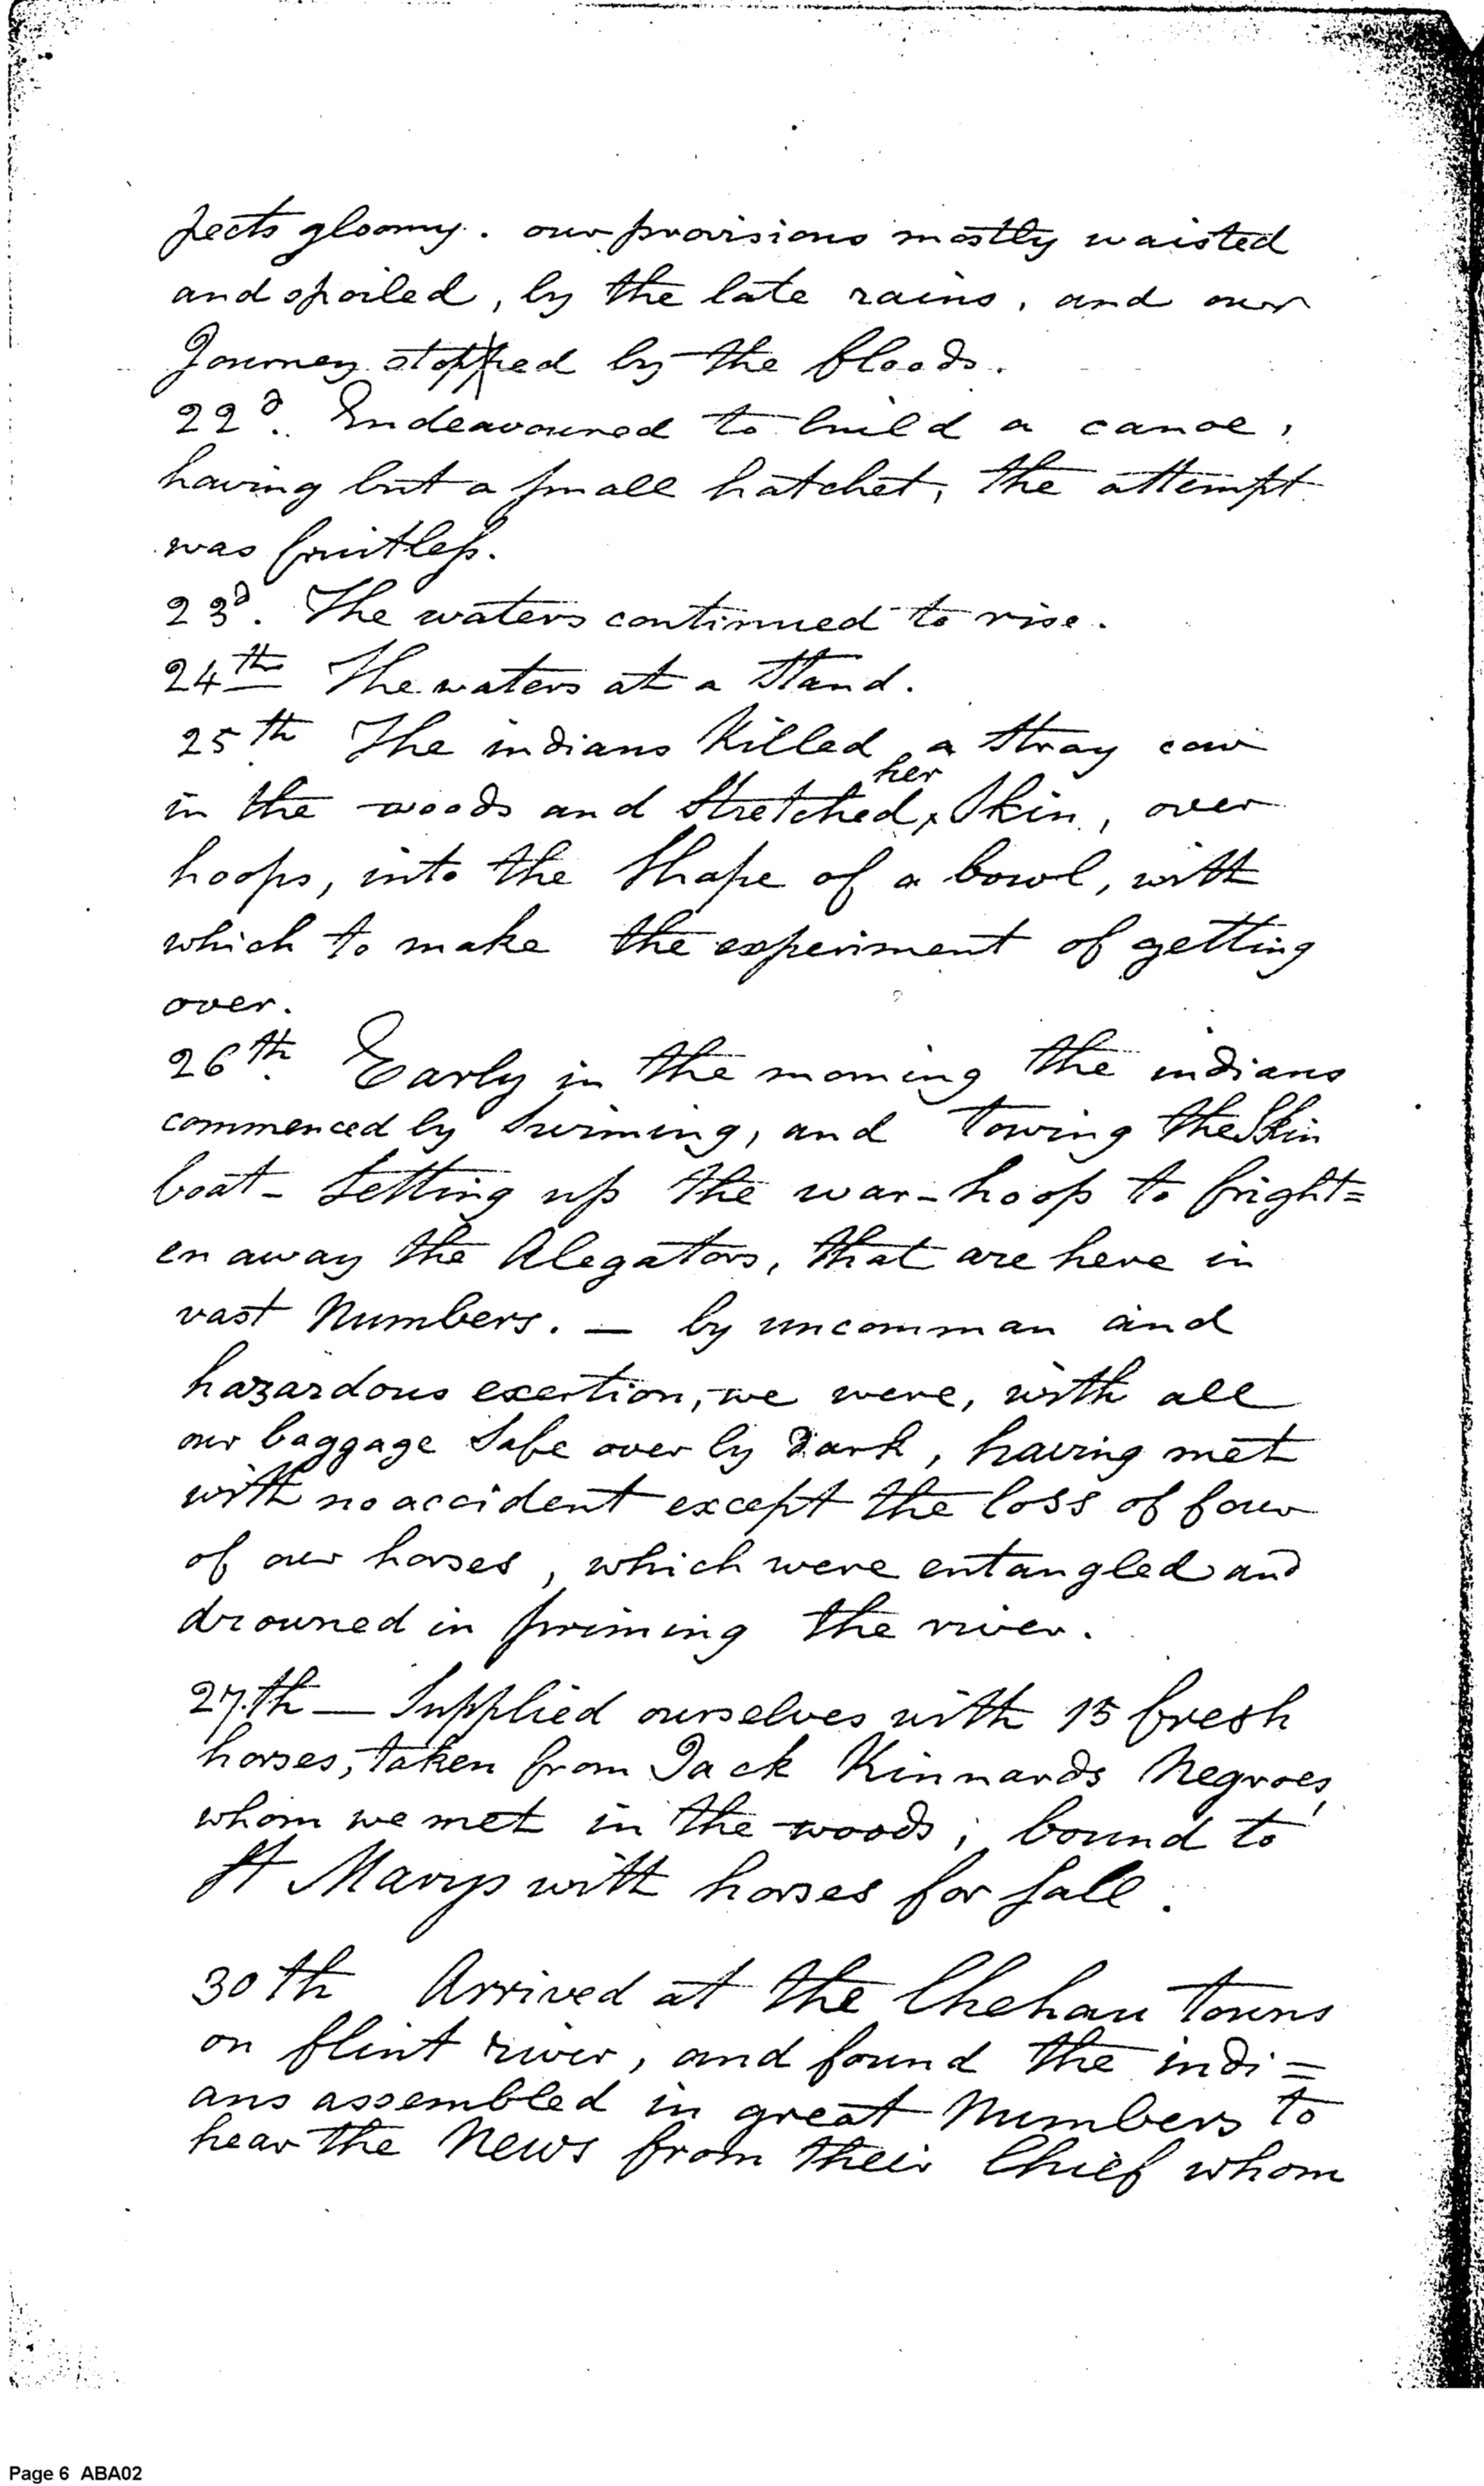 pects gloomy. our provisions mostly waisted
and spoiled, by the late rains, and our
Journey stopped by the floods.
22d. Endeavoured to build a canoe,
having but a small hatchet, the attempt
was fruitless.
23d. The waters continued to rise.
24th The waters at a Stand.
25th The indians Killed a Stray cow
her
in the woods and Stretched, Skin, over
hoops, into the Shape of a bowl, with
which to make the experiment of getting
over.
26th Early in the morning the indians
commenced by Swiming, and towing the Skin
boat - Setting up the war-hoop to fright=
en away the Alegators, that are here in
vast Numbers. — by uncomman and
hazardous exertion, we were, with all
our baggage Safe over by Dark, having met
with no accident except the loss of four
of our horses, which were entangled and
drowned in swiming the river.
27th — Supplied ourselves with 15 fresh
horses, taken from Jack Kinnards Negroes,
whom we met in the woods, bound to
St Marys with horses for sall.
30th Arrived at the Chehau towns
on flint river, and found the indi=
ans assembled in great Numbers to
hear the News from their Chief whom
Page 6 ABA02